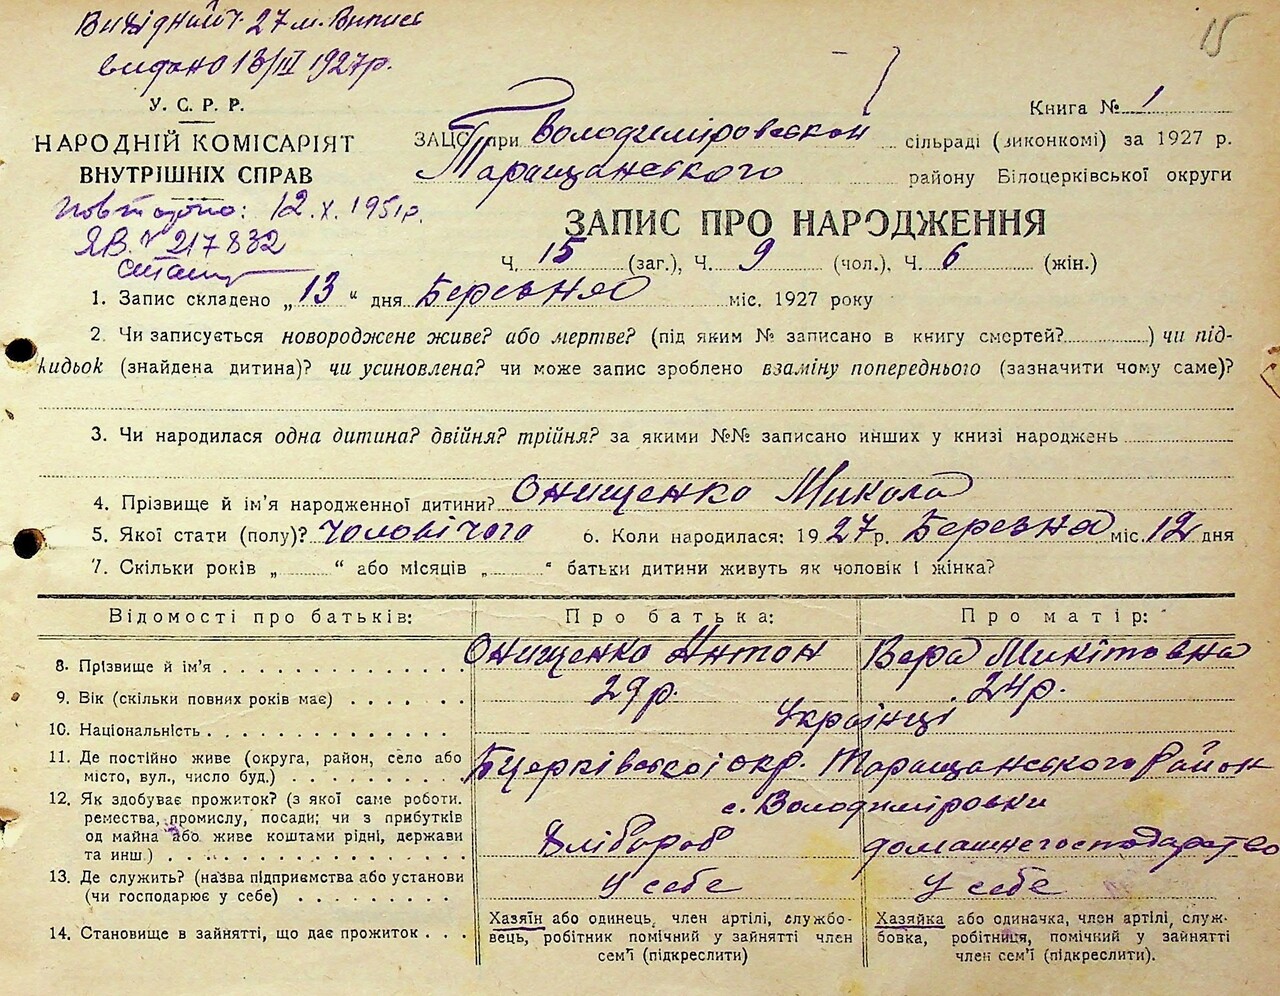 Вихідний ч. 27 м. Випись
видано 13/III 1927р.
15
У. С. Р. Р.
НАРОДНІЙ КОМІСАРІЯТ
ВНУТРІШНІХ СПРАВ
12.X.1951р.
ЯВ. № 217832
Книга № 1
ЗАГС при Володиміровській сільраді (виконкомі) за 1927 р.
Таращанського району Білоцерківської округи
ЗАПИС ПРО НАРОДЖЕННЯ
Ч. 15 (заг.), Ч. 9 (чол.), Ч. 6 (жін.)
1. Запис складено „ 13 “ дня Березня міс. 1927 року
2. Чи записується новороджене живе? або мертве? (під яким № записано в книгу смертей?..........) чи під-
кидьок (знайдена дитина)? чи усиновлена? чи може запис зроблено взаміну попереднього (зазначити чому саме)?
3. Чи народилася одна дитина? двійня? трійня? за якими №№ записано инших у книзі народжень
4. Прізвище й ім'я народженої дитини? Онищенко Микола
5. Якої стати (полу)? Чоловічого 6. Коли народилася: 1927 р. Березня міс. 12 дня
7. Скільки років „..........“ або місяців „..........“ батьки дитини живуть як чоловік і жінка?
Відомості про батьків: Про батька: Про матір:
8. Прізвище й ім'я Онищенко Антон Вера Микітовна
9. Вік (скільки повних років має) 29р. 24р.
10. Національність Українці
11. Де постійно живе (округа, район, село або
місто, вул., число буд.) Бцерківської окр. Таращанського Район
с. Володиміровки
12. Як здобуває прожиток? (з якої саме роботи.
ремества, промислу, посади; чи з прибутків
од майна або живе коштами рідні, держави
та инш.) Хлібороб домашнє господарство
13. Де служить? (назва підприємства або установи
(чи господарює у себе) У себе У себе
14. Становище в зайнятті, що дає прожиток
Хазяїн або одинець, член артілі, службо-
вець, робітник помічний у зайнятті член
сем'ї (підкреслити)
Хазяйка або одиначка, член артілі, служ-
бовка, робітниця, помічний у зайнятті
член сем'ї (підкреслити).